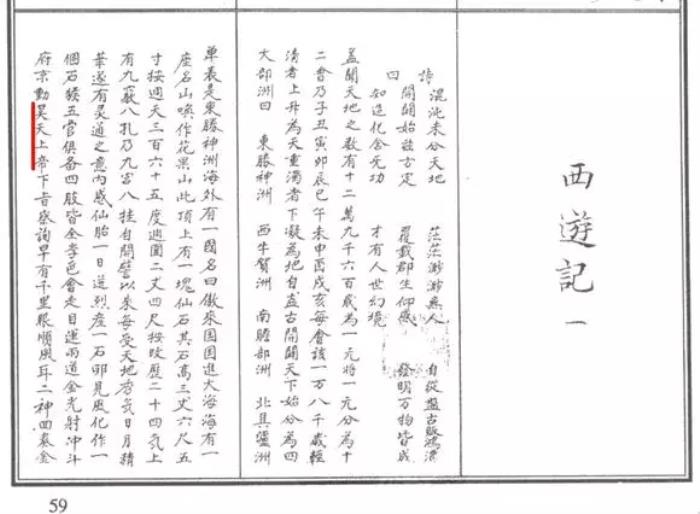 西遊記 一
詩曰
混沌未分天地 茫茫渺渺無人 自從盤古破鴻濛
開闢始玆方定 覆載群生仰感 發明万物皆成
知造化會元功 才有人世幻境
蓋開天地之数有十二萬九千六百歲為一元將一元分為十
二會乃子丑寅卯辰巳午未申酉戌亥每會該一万八千歲輕
清者上升為天重濁者下凝為地自盘古開闢天下始分為四
大部洲曰 東勝神洲 西牛賀洲 南瞻部洲 北具驢洲
單表是東勝神洲海外有一國名曰傲來国国進大海海有一
座名山喚作花菓山此頂上有一塊仙石其石高三丈六尺五
寸按週天三百六十五度週圍二丈四尺按政歷二十四気上
有九竅八孔乃九宮八挂自開譬以來每受天地秀気日月精
華遂有灵通之意内感仙胎一日迸烈產一石卵見風化作一
個石猴五官俱备四肢皆全學爬會走目運兩道金光射冲斗
府京動昊天上帝下旨察詢早有千里眼順風耳二神回奏金
59